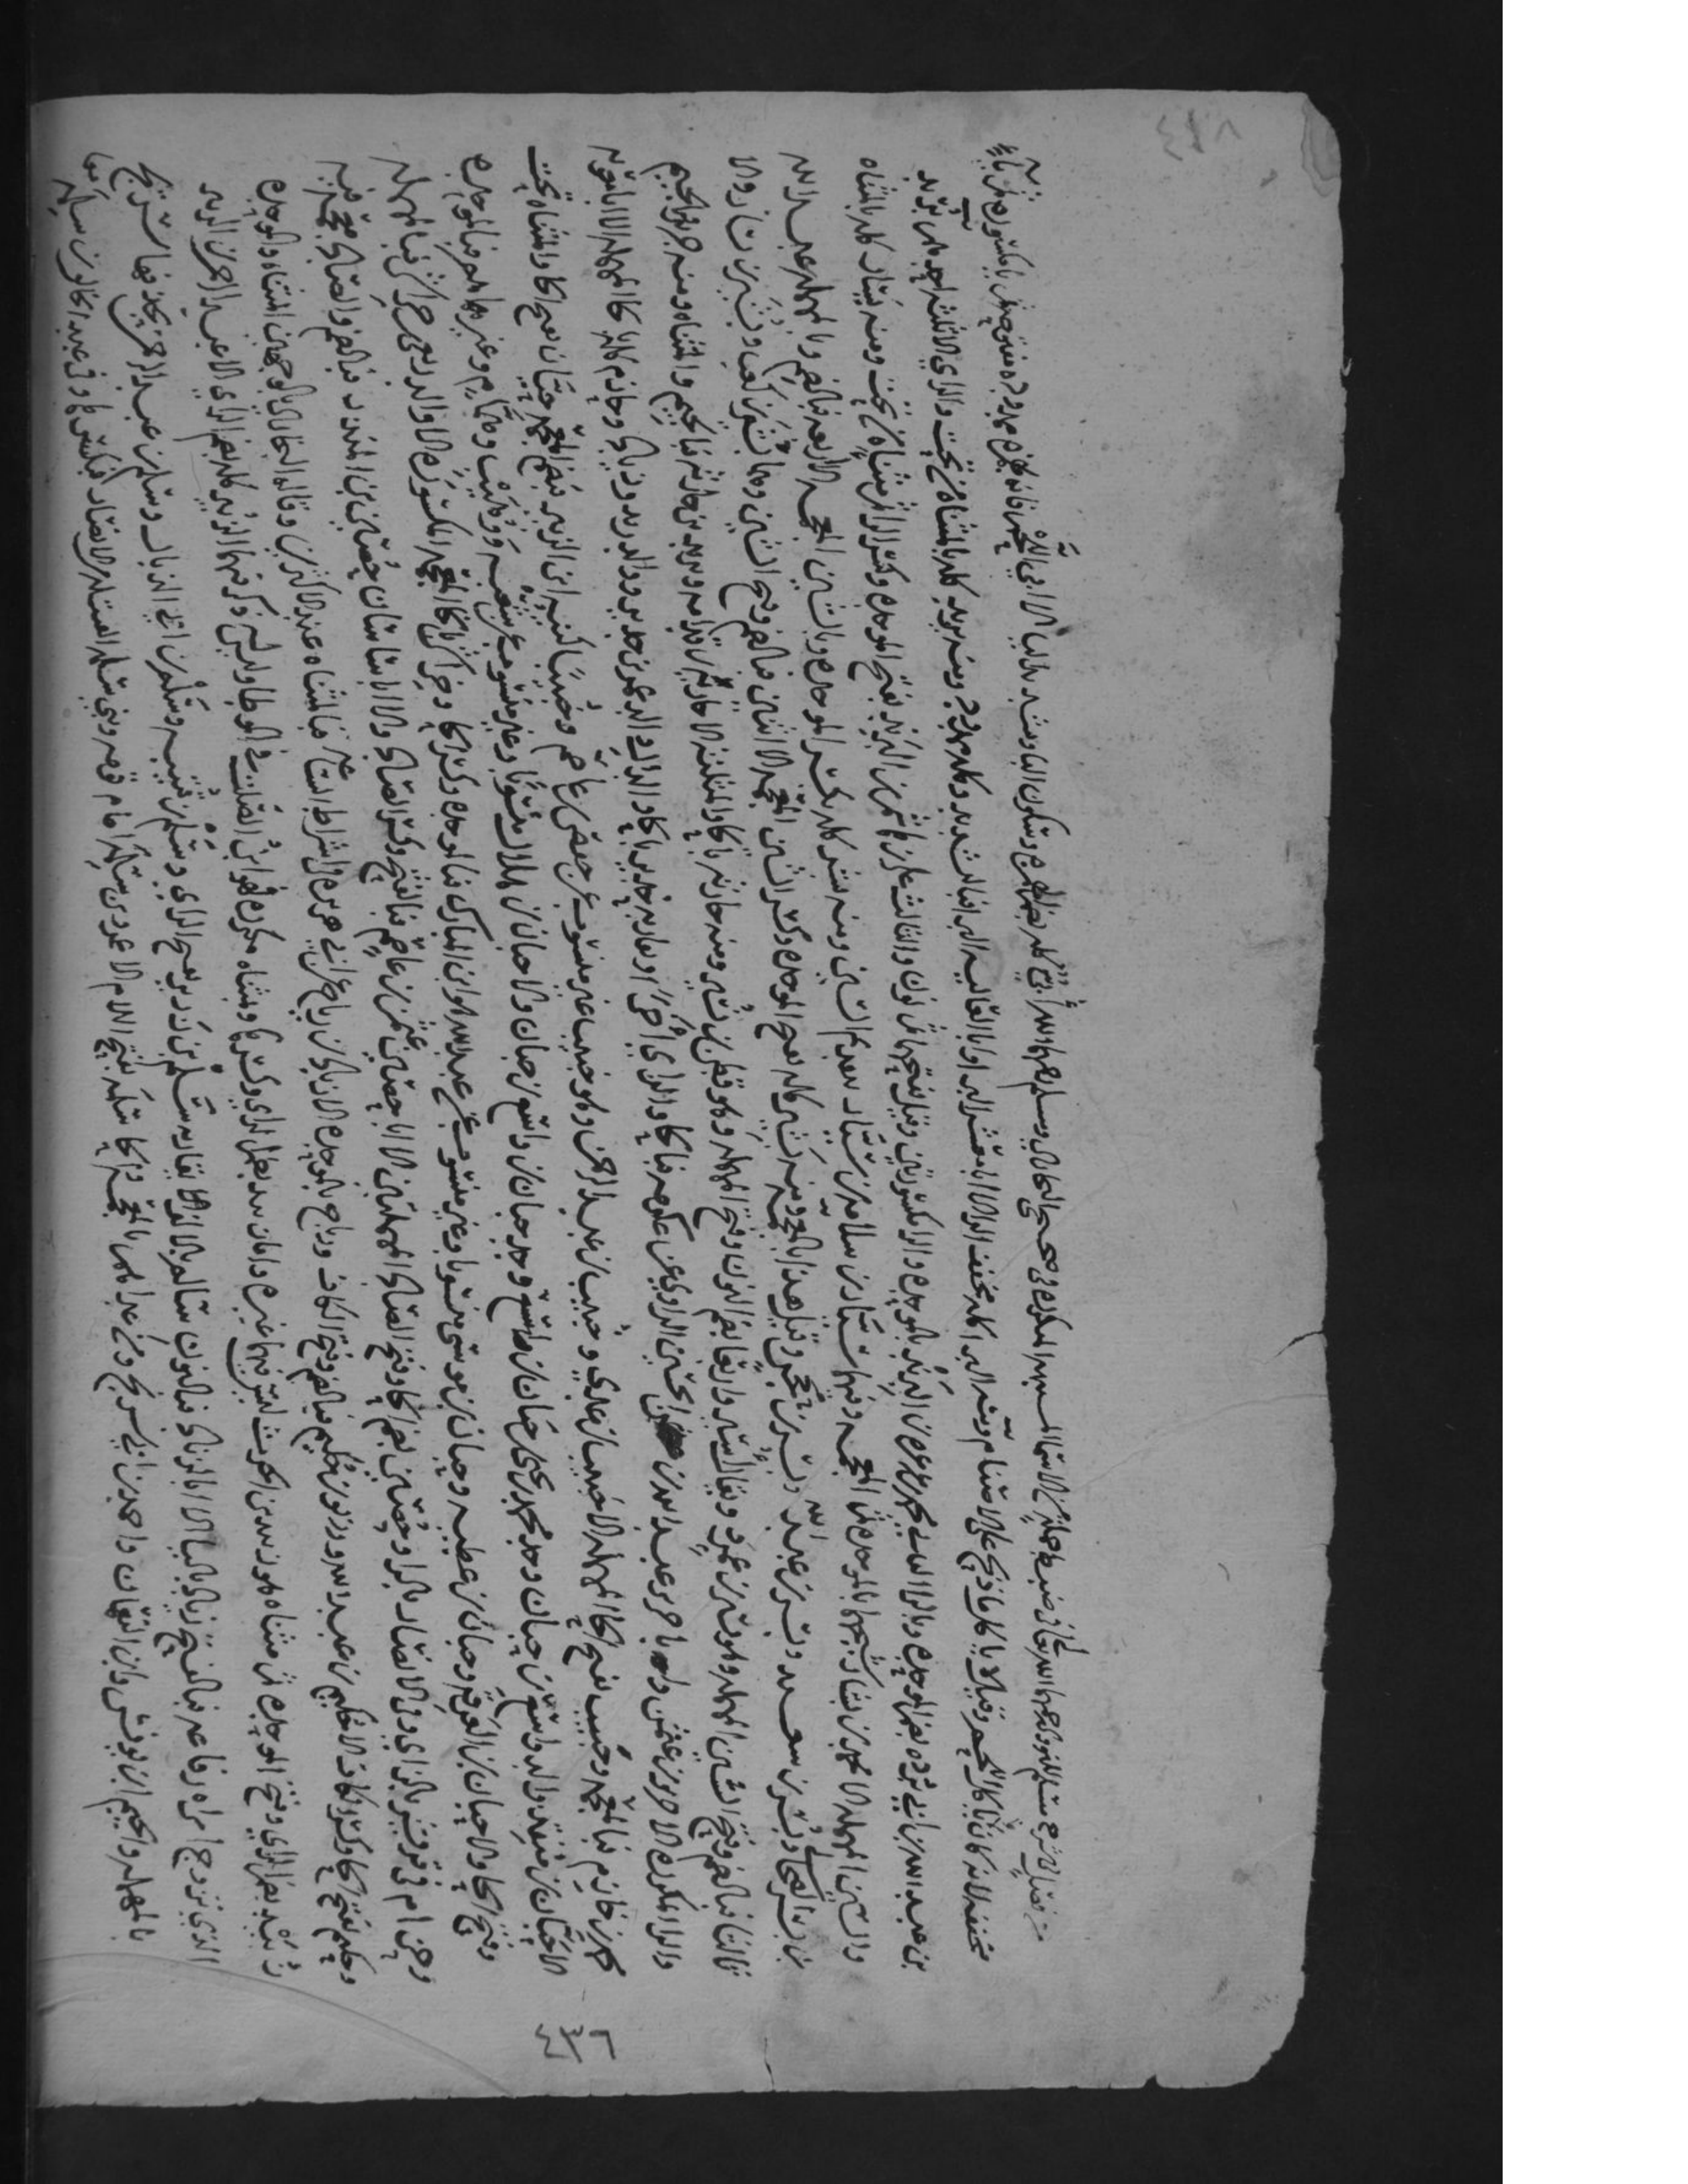 فصل من شرح مسلم للنووي رحمهما الله تعالى في ضبط جملة من الاسما المكررة في صحيحي البخاري ومسلم ابي كله بضم الهمزة وتشديد الياء الا ابي اللحم فانه بهمزة ممدودة مفتوحة ثم با مكسورة ثم ياء
مخففة لانه كان لا ياكل اللحم وقيل لا ياكل ما ذبح على الاصنام ومنه البرا كله مخفف الراء الا ابا معشر البرا وابا العالية البرا فبالتشديد وكله ممدود ومنه يزيد كله بالمثناة من تحت والزاي الا ثلثة احدهم بريد
بن عبد الله بن ابي بردة بضم الموحدة وبالراء الثاني محمد بن عرعرة بن البرند بالموحدة والراء المكسورتين وقيل بفتحهما ثم نون والثالث علي بن هاشم بن البريد بفتح الموحدة وكسر الراء ثم مثناة من تحت ومنه يسار كله بالمثناة
والسين المهملة الا محمد بن بشار شيخهما فبالموحدة ثم المعجمة وفيهما سيار بن سلامة وسيار بتقديم السين ومنه بشر كله بكسر الموحدة وبالشين المعجمة الا اربعة فبالضم وبالمهملة عبد الله
بن بسر الصحابي وبسر بن سعيد وبسر بن عبيد الله وبسر بن محجن وقيل هذا بالمعجمة ومنه بشير كله بفتح الموحدة وكسر الشين المعجمة الا اثنين فبالضم وفتح الشين وهما بشير بن كعب وبشير بن يسار والا
ثالثا فبالضم وفتح السين المهملة وهو يسير بن عمرو ويقال اسير ورابعا بضم النون وفتح المهملة وهو قطن بن نسير ومنه حارثة بالحاء والمثلثة الا جارية بن قدامة ويزيد بن جارية فبالجيم والمثناة ومنه جرير بالجيم
والراء المكررة الا حريز بن عثمن وابا حريز عبد الله بن الحسين الراوي عن عكرمة فبالحاء والزاي آخرا ويقاربه حدير بالحاء والدال والد عمران بن حدير ووالد زيد وزياد وحازم كله بالحاء المهملة الا ابا معوية
محمد بن خازم فبالمعجمة وحبيب بفتح الحاء المهملة الا خبيب بن عدي وخبيب بن عبد الرحمن وهو خبيب غير منسوب عن حفص بن عاصم وخبيبا كنية ابن الزبير فبضم المعجمة حيان بفتح الحاء والمثناة تحت
الا حبان بن منقذ والد واسع بن حبان وجد محمد بن يحيى بن حبان وجد حبان بن واسع بن حبان والا حبان بن هلال منسوبا وغير منسوب عن شعبة ووهيب وهمام وغيرهم فبالموحدة
وفتح الحاء والا حبان بن العرقة وحبان بن عطية وحبان بن موسى منسوبا وغير منسوب عن عبد الله هو ابن المبارك فبالموحدة وكسر الحاء وخراش بالخاء المعجمة الا والد ربعي حراش فبالمهملة
وحزام في قريش بالزاي وفي الانصار بالراء وحصين بضم الحاء وفتح الصاد المهملتين الا ابا حصين عثمن بن عاصم فبالفتح وكسر الصاد والا ابا ساسان حضين بن المنذر فبالضم والضاد معجمة فيه
وحكيم بفتح الحاء وكسر الكاف الا حكيم بن عبد الله ورزيق بن حكيم فبالضم وفتح الكاف ورباح بالموحدة الا زياد بن رياح عن ابي هريرة في اشراط الساعة فبالمثناة عند الاكثرين وقاله البخاري بالوجهين المثناة والموحدة
زبيد بضم الزاي وفتح الموحدة ثم مثناة هو زبيد بن الحرث ليس فيهما غيره واما زييد بضم الزاي وكسرها وبمثناة مكررة فهو ابن الصلت في الموطا وليس له ذكر فيهما الزبير كله بضم الزاي الا عبد الرحمن بن الزبير
الذي تزوج امراة رفاعة فبالفتح زياد بالياء الا ابا الزناد فبالنون سالم بالالف ويقاربه سلم بن زرير بفتح الزاي وسلم بن قتيبة وسلم بن ابي الذيال وسلم بن عبد الرحمن سريج
بالمهملة والجيم ابن يونس وابن النعمان واحمد بن ابي سريج ومن عداهم بالمعجمة والحاء سلمة بفتح اللام الا عمرو بن سلمة امام قومه وبني سلمة القبيلة من الانصار فبكسرها وفي عبد الخالق بن سلمة